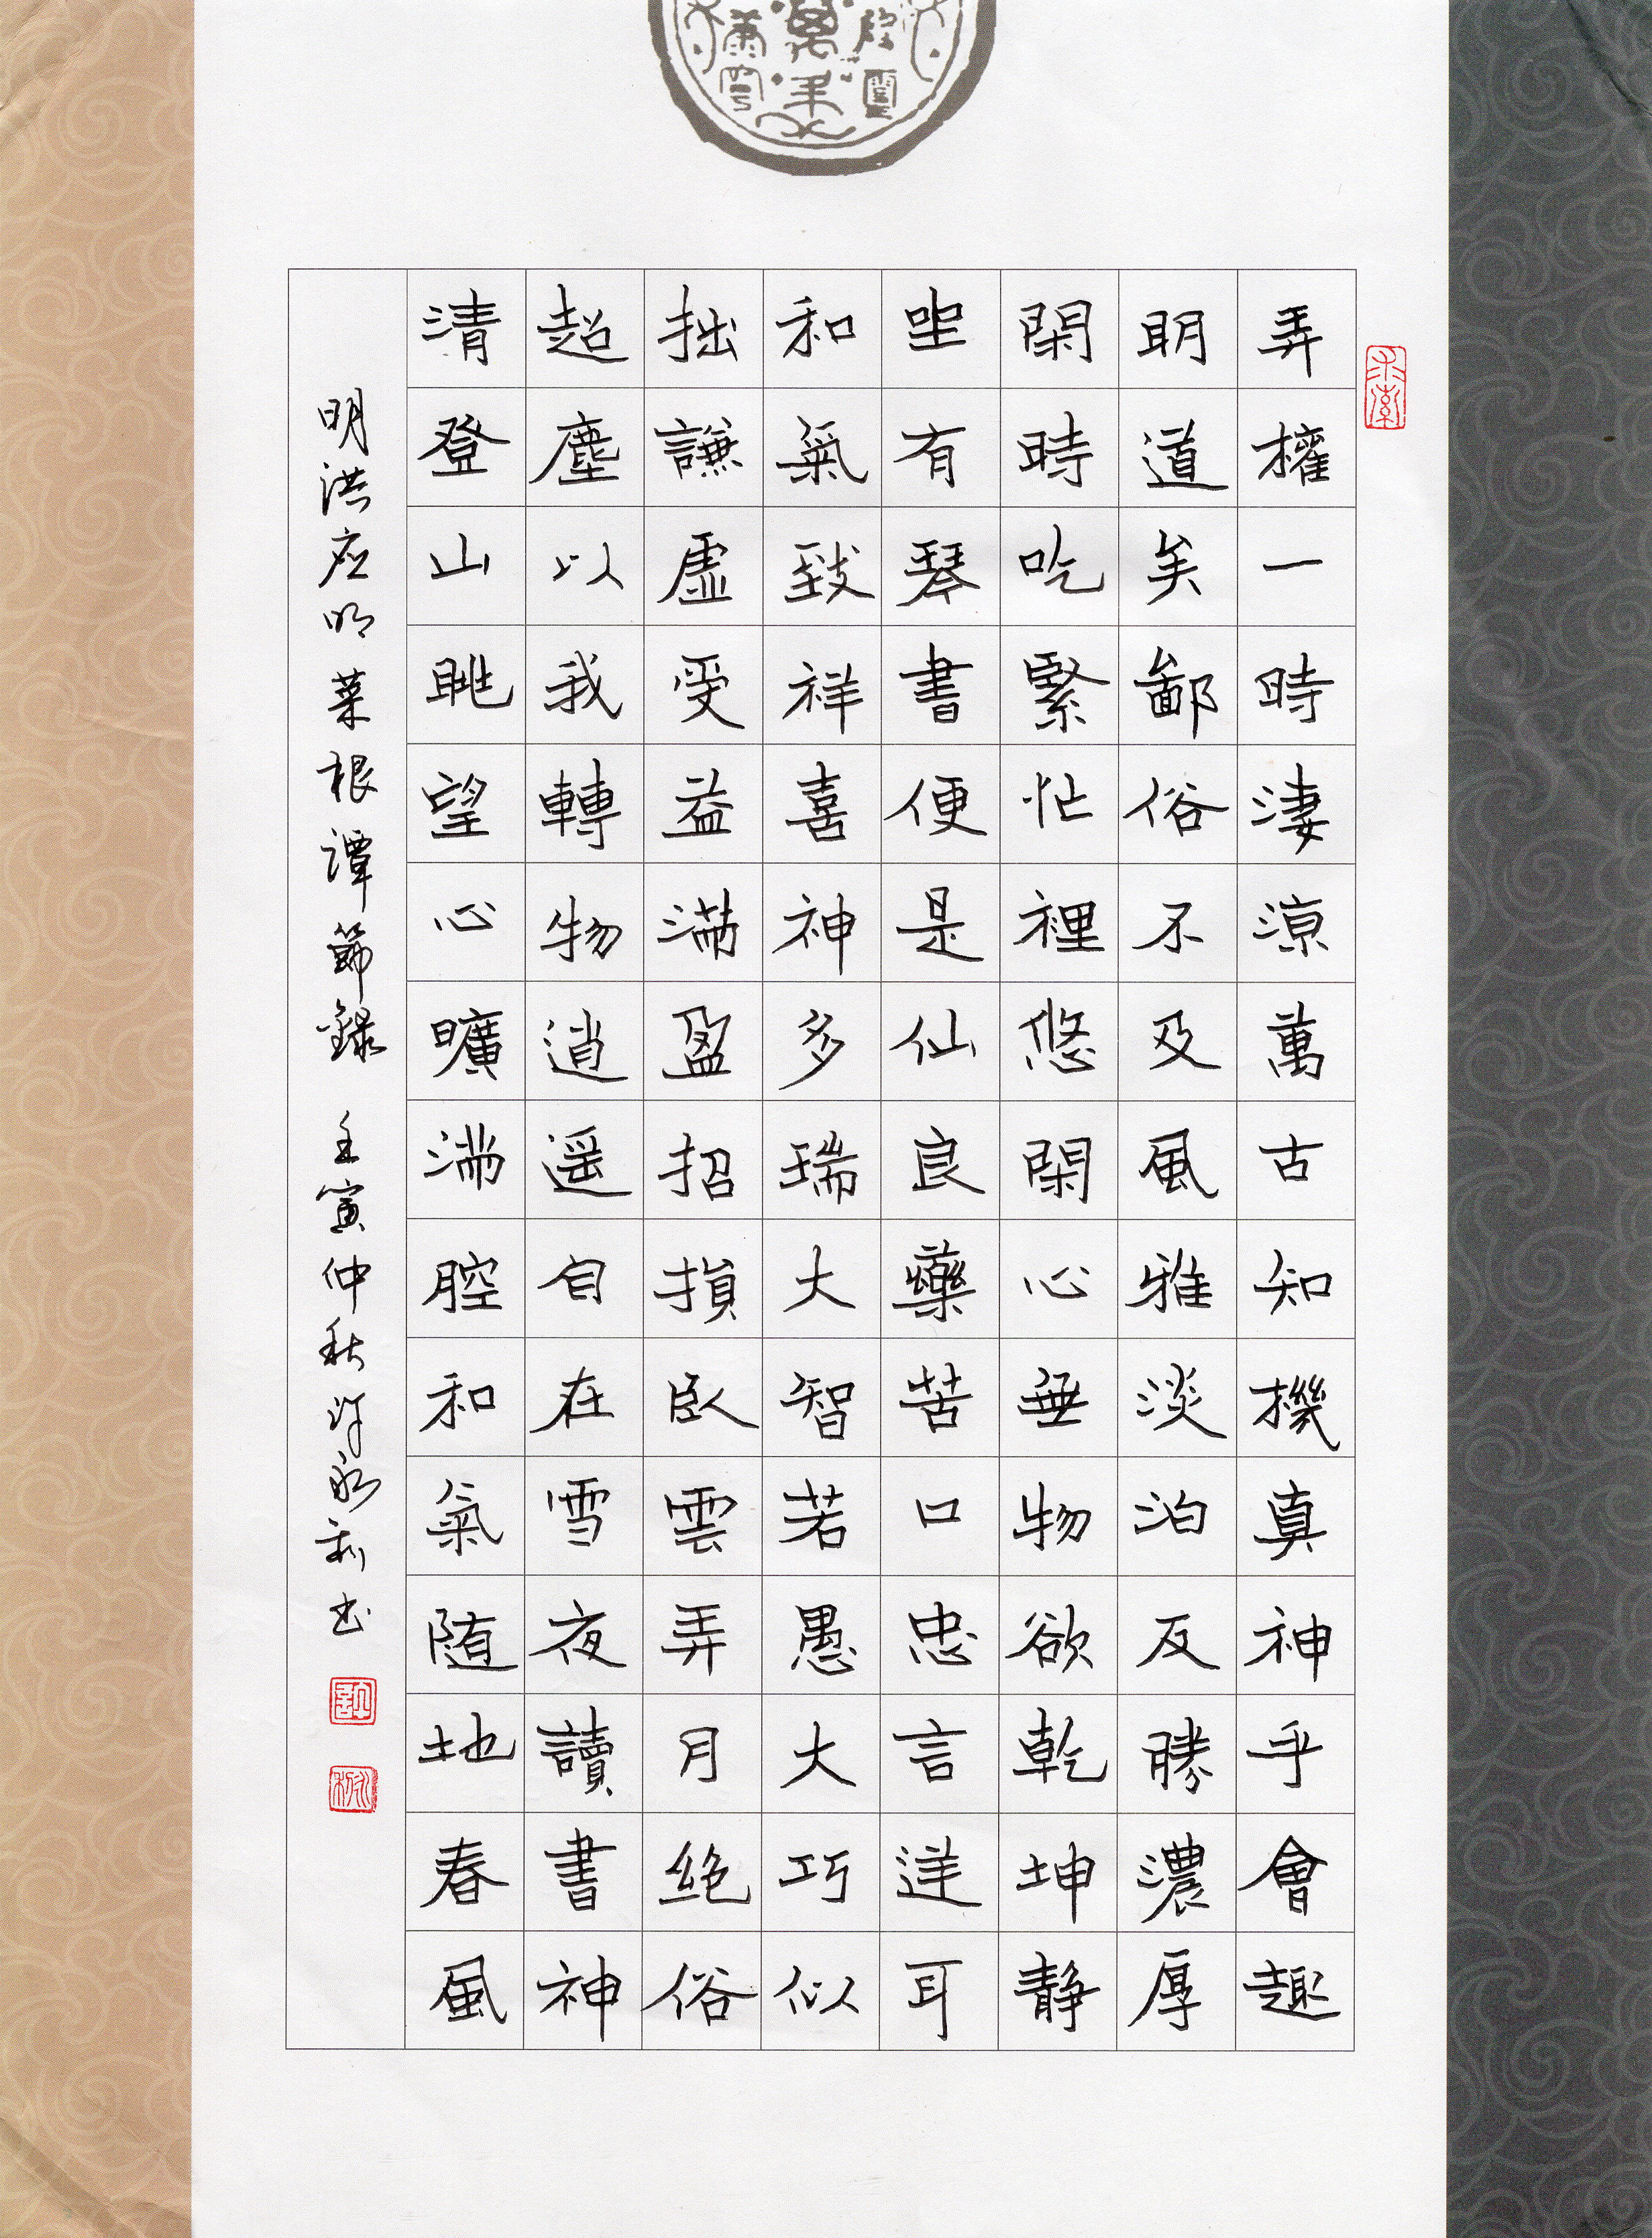 弄權一時淒涼萬古知機真神乎會趣
明道矣鄙俗不及風雅淡泊反勝濃厚
閑時吃緊忙裡悠閑心無物欲乾坤靜
坐有琴書便是仙良藥苦口忠言逆耳
和氣致祥喜神多瑞大智若愚大巧似
拙謙虛受益滿盈招損臥雲弄月絕俗
超塵以我轉物逍遥自在雪夜讀書神
清登山眺望心曠滿腔和氣随地春風
明洪应明菜根譚節錄 壬寅仲秋许永利书